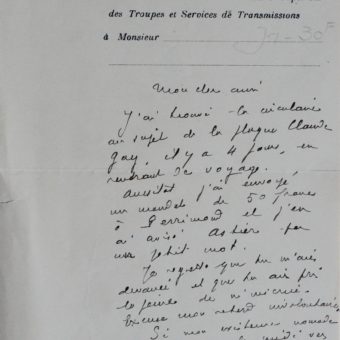 des Troupes et Services de Transmissions
à Monsieur
Jn - 30F
Mon cher ami
J'ai trouvé la circulaire
au sujet de la plaque Claude
Gay, il y a 4 jours, en
rentrant de voyage.
Aussitôt j'ai envoyé,
un mandat de 50 francs
à Perrimond et j'en
ai avisé Astier par
un petit mot.
Je regrette que tu m'aies
devancé et que tu aies pris
la peine de m'écrire.
Excuse mon retard involontaire
Si mon